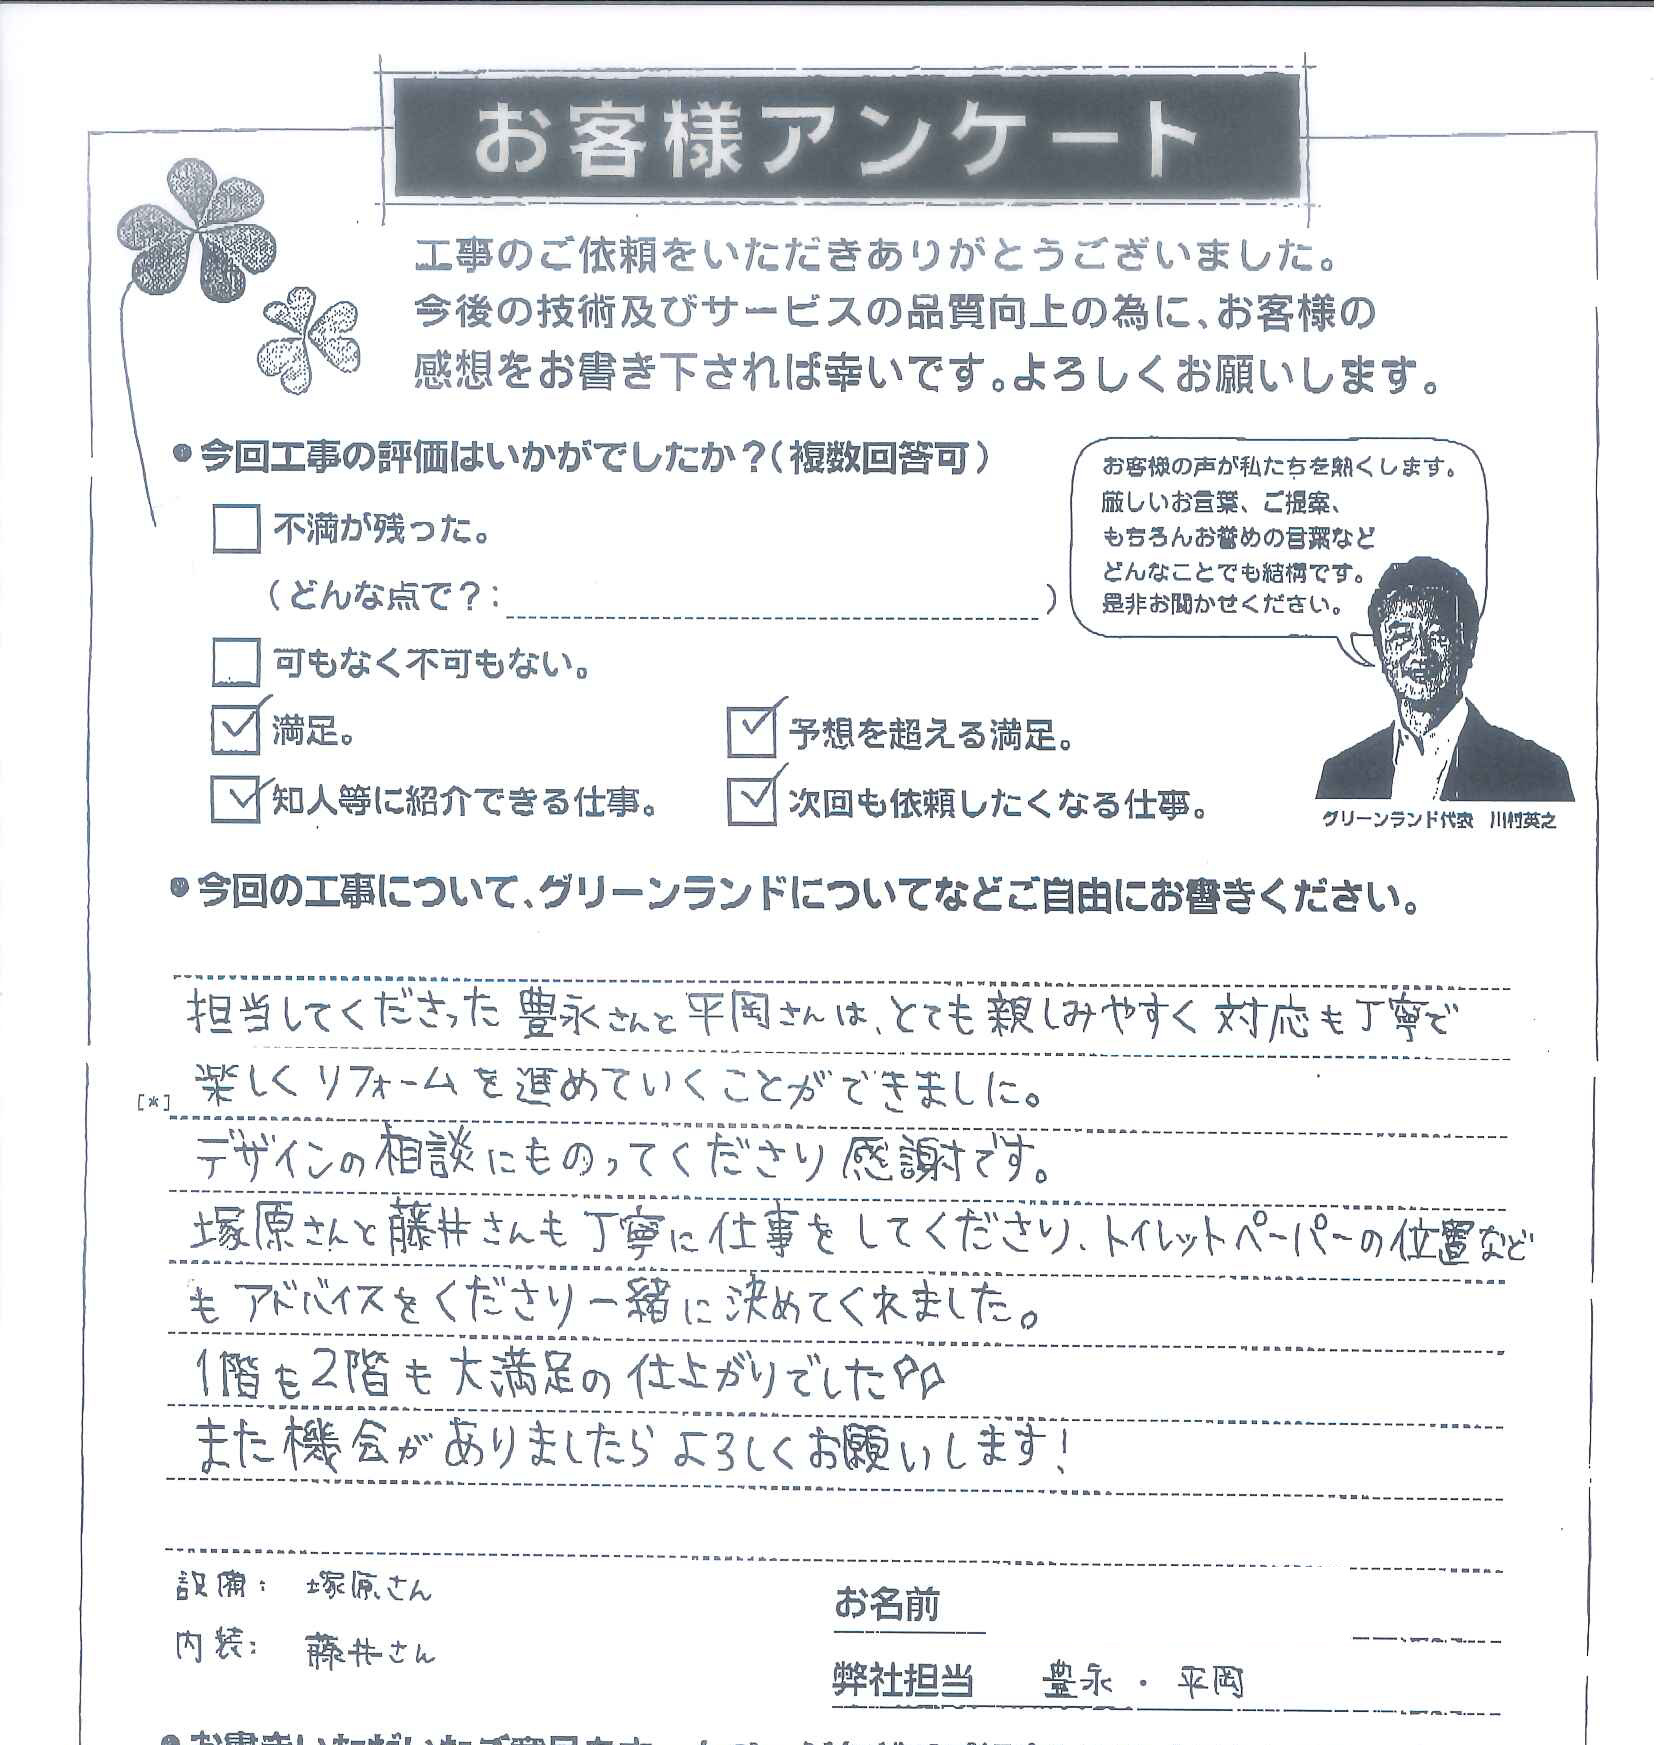 お客様アンケート
工事のご依頼をいただきありがとうございました。
今後の技術及びサービスの品質向上の為に、お客様の
感想をお書き下されば幸いです。よろしくお願いします。
●今回工事の評価はいかがでしたか？（複数回答可）
不満が残った。
（どんな点で？：　）
可もなく不可もない。
満足。
予想を超える満足。
知人等に紹介できる仕事。
次回も依頼したくなる仕事。
お客様の声が私たちを熱くします。
厳しいお言葉、ご提案、
もちろんお誉めの言葉など
どんなことでも結構です。
是非お聞かせください。
グリーンランド代表　川村英之
●今回の工事について、グリーンランドについてなどご自由にお書きください。
担当してくださった豊永さんと平岡さんは、とても親しみやすく対応も丁寧で
[*]
楽しくリフォームを進めていくことができました。
デザインの相談にものってくださり感謝です。
塚原さんと藤井さんも丁寧に仕事をしてくださり、トイレットペーパーの位置など
もアドバイスをくださり一緒に決めてくれました。
1階も2階も大満足の仕上がりでした
また機会がありましたらよろしくお願いします！
設備：　塚原さん
内装：　藤井さん
お名前
弊社担当　豊永・平岡